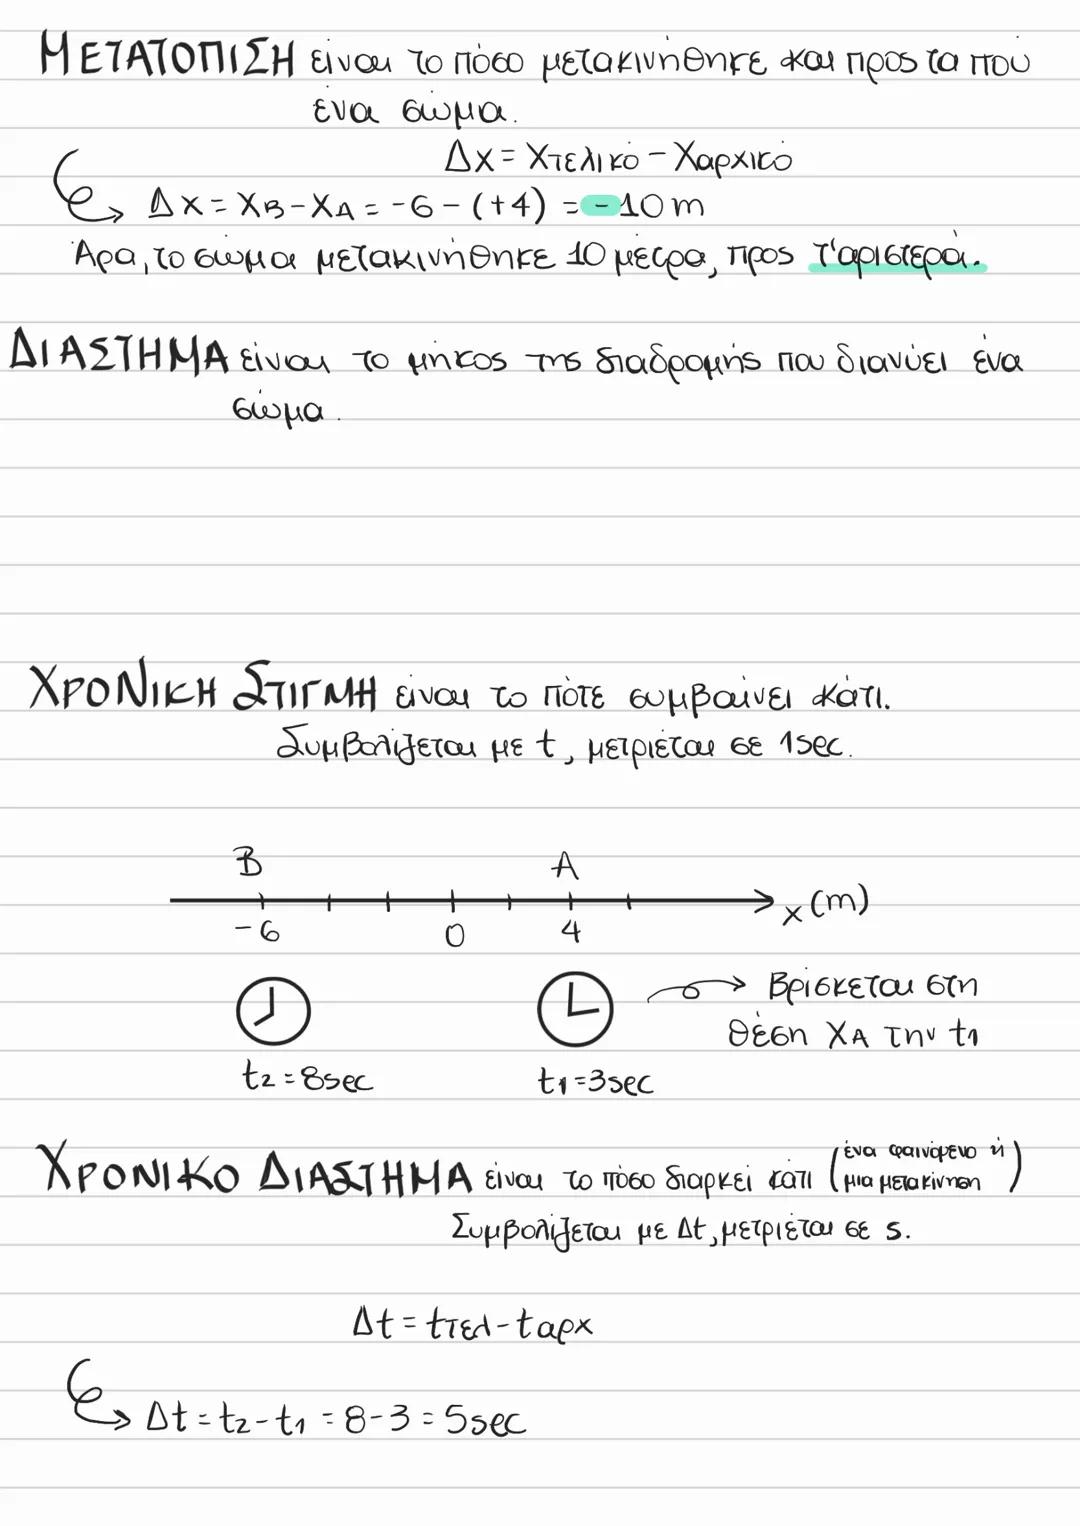 ΜΕΤΑΤΟΠΙΣΗ είναι το πόσο μετακινήθηκε και προς τα που
ένα σώμα.
Δx = Xτελικό - Xαρχικό
Δx = XB - XA = -6 - (+4) = -10m
Άρα, το σώμα μετακινήθηκε 10 μέτρα, προς τ'αριστερά.
ΔΙΑΣΤΗΜΑ είναι το μήκος της διαδρομής που διανύει ένα
σώμα.
ΧΡΟΝΙΚΗ ΣΤΙΓΜΗ είναι το πότε συμβαίνει κάτι.
Συμβολίζεται με t, μετριέται σε 1sec.
B A
x (m)
-6 0 4
Βρίσκεται στη
θέση XA την t1
t2 = 8sec t1 = 3sec
ΧΡΟΝΙΚΟ ΔΙΑΣΤΗΜΑ είναι το πόσο διαρκεί κάτι (ένα φαινόμενο ή
μια μετακίνηση)
Συμβολίζεται με Δt, μετριέται σε s.
Δt = tτελ - tαρχ
Δt = t2 - t1 = 8 - 3 = 5sec